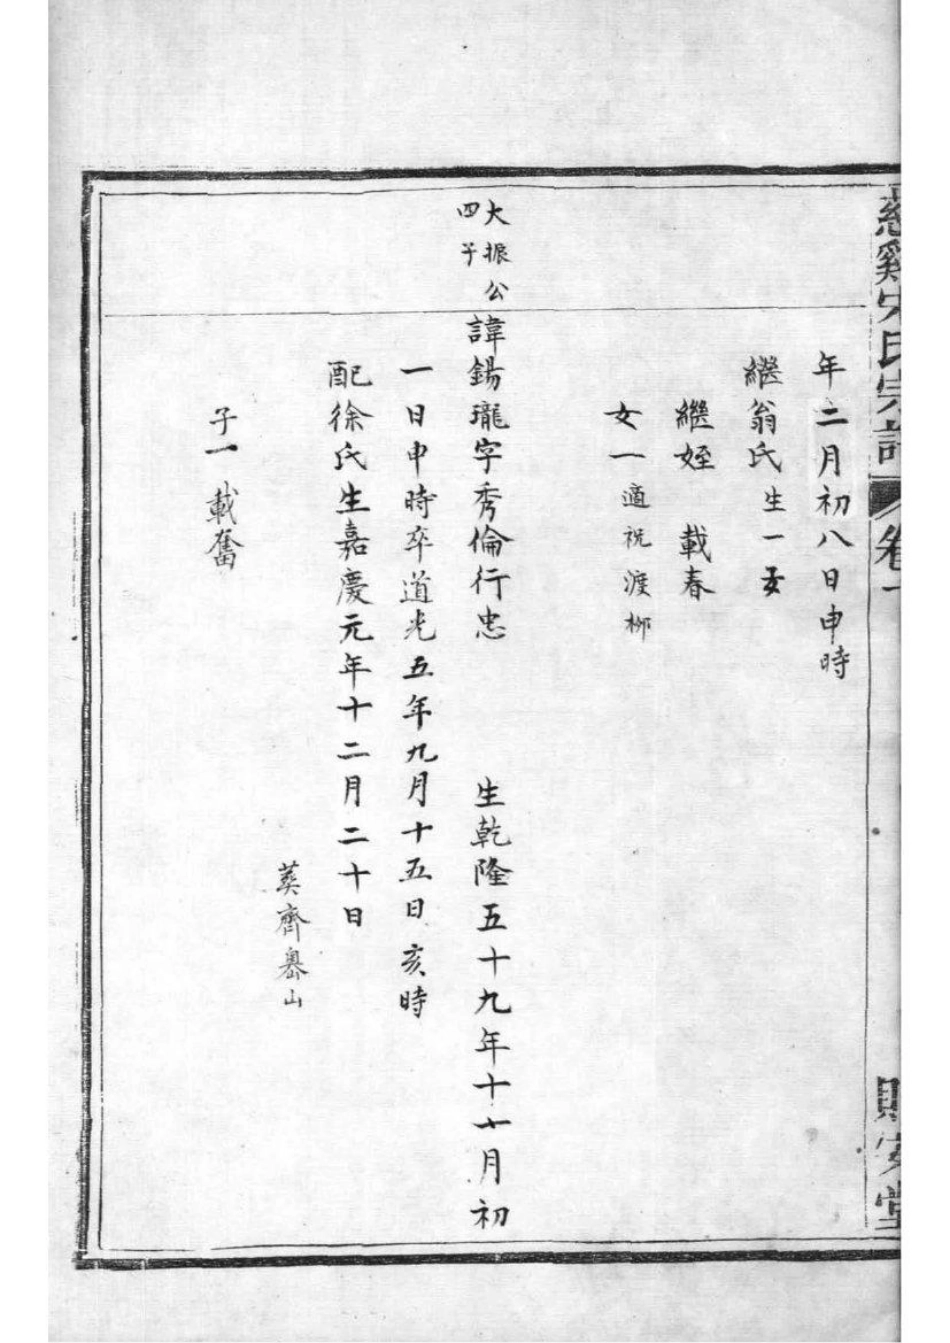 慈谿宋氏宗譜 卷一
年二月初八日申時
繼翁氏生一女
繼姪 載春
女一適祝渡柳
大振公
四子
諱錫瓏字秀倫行忠 生乾隆五十九年十一月初
一日申時卒道光五年九月十五日亥時
配徐氏生嘉慶元年十二月二十日
葬齊嶴山
子一 載奮